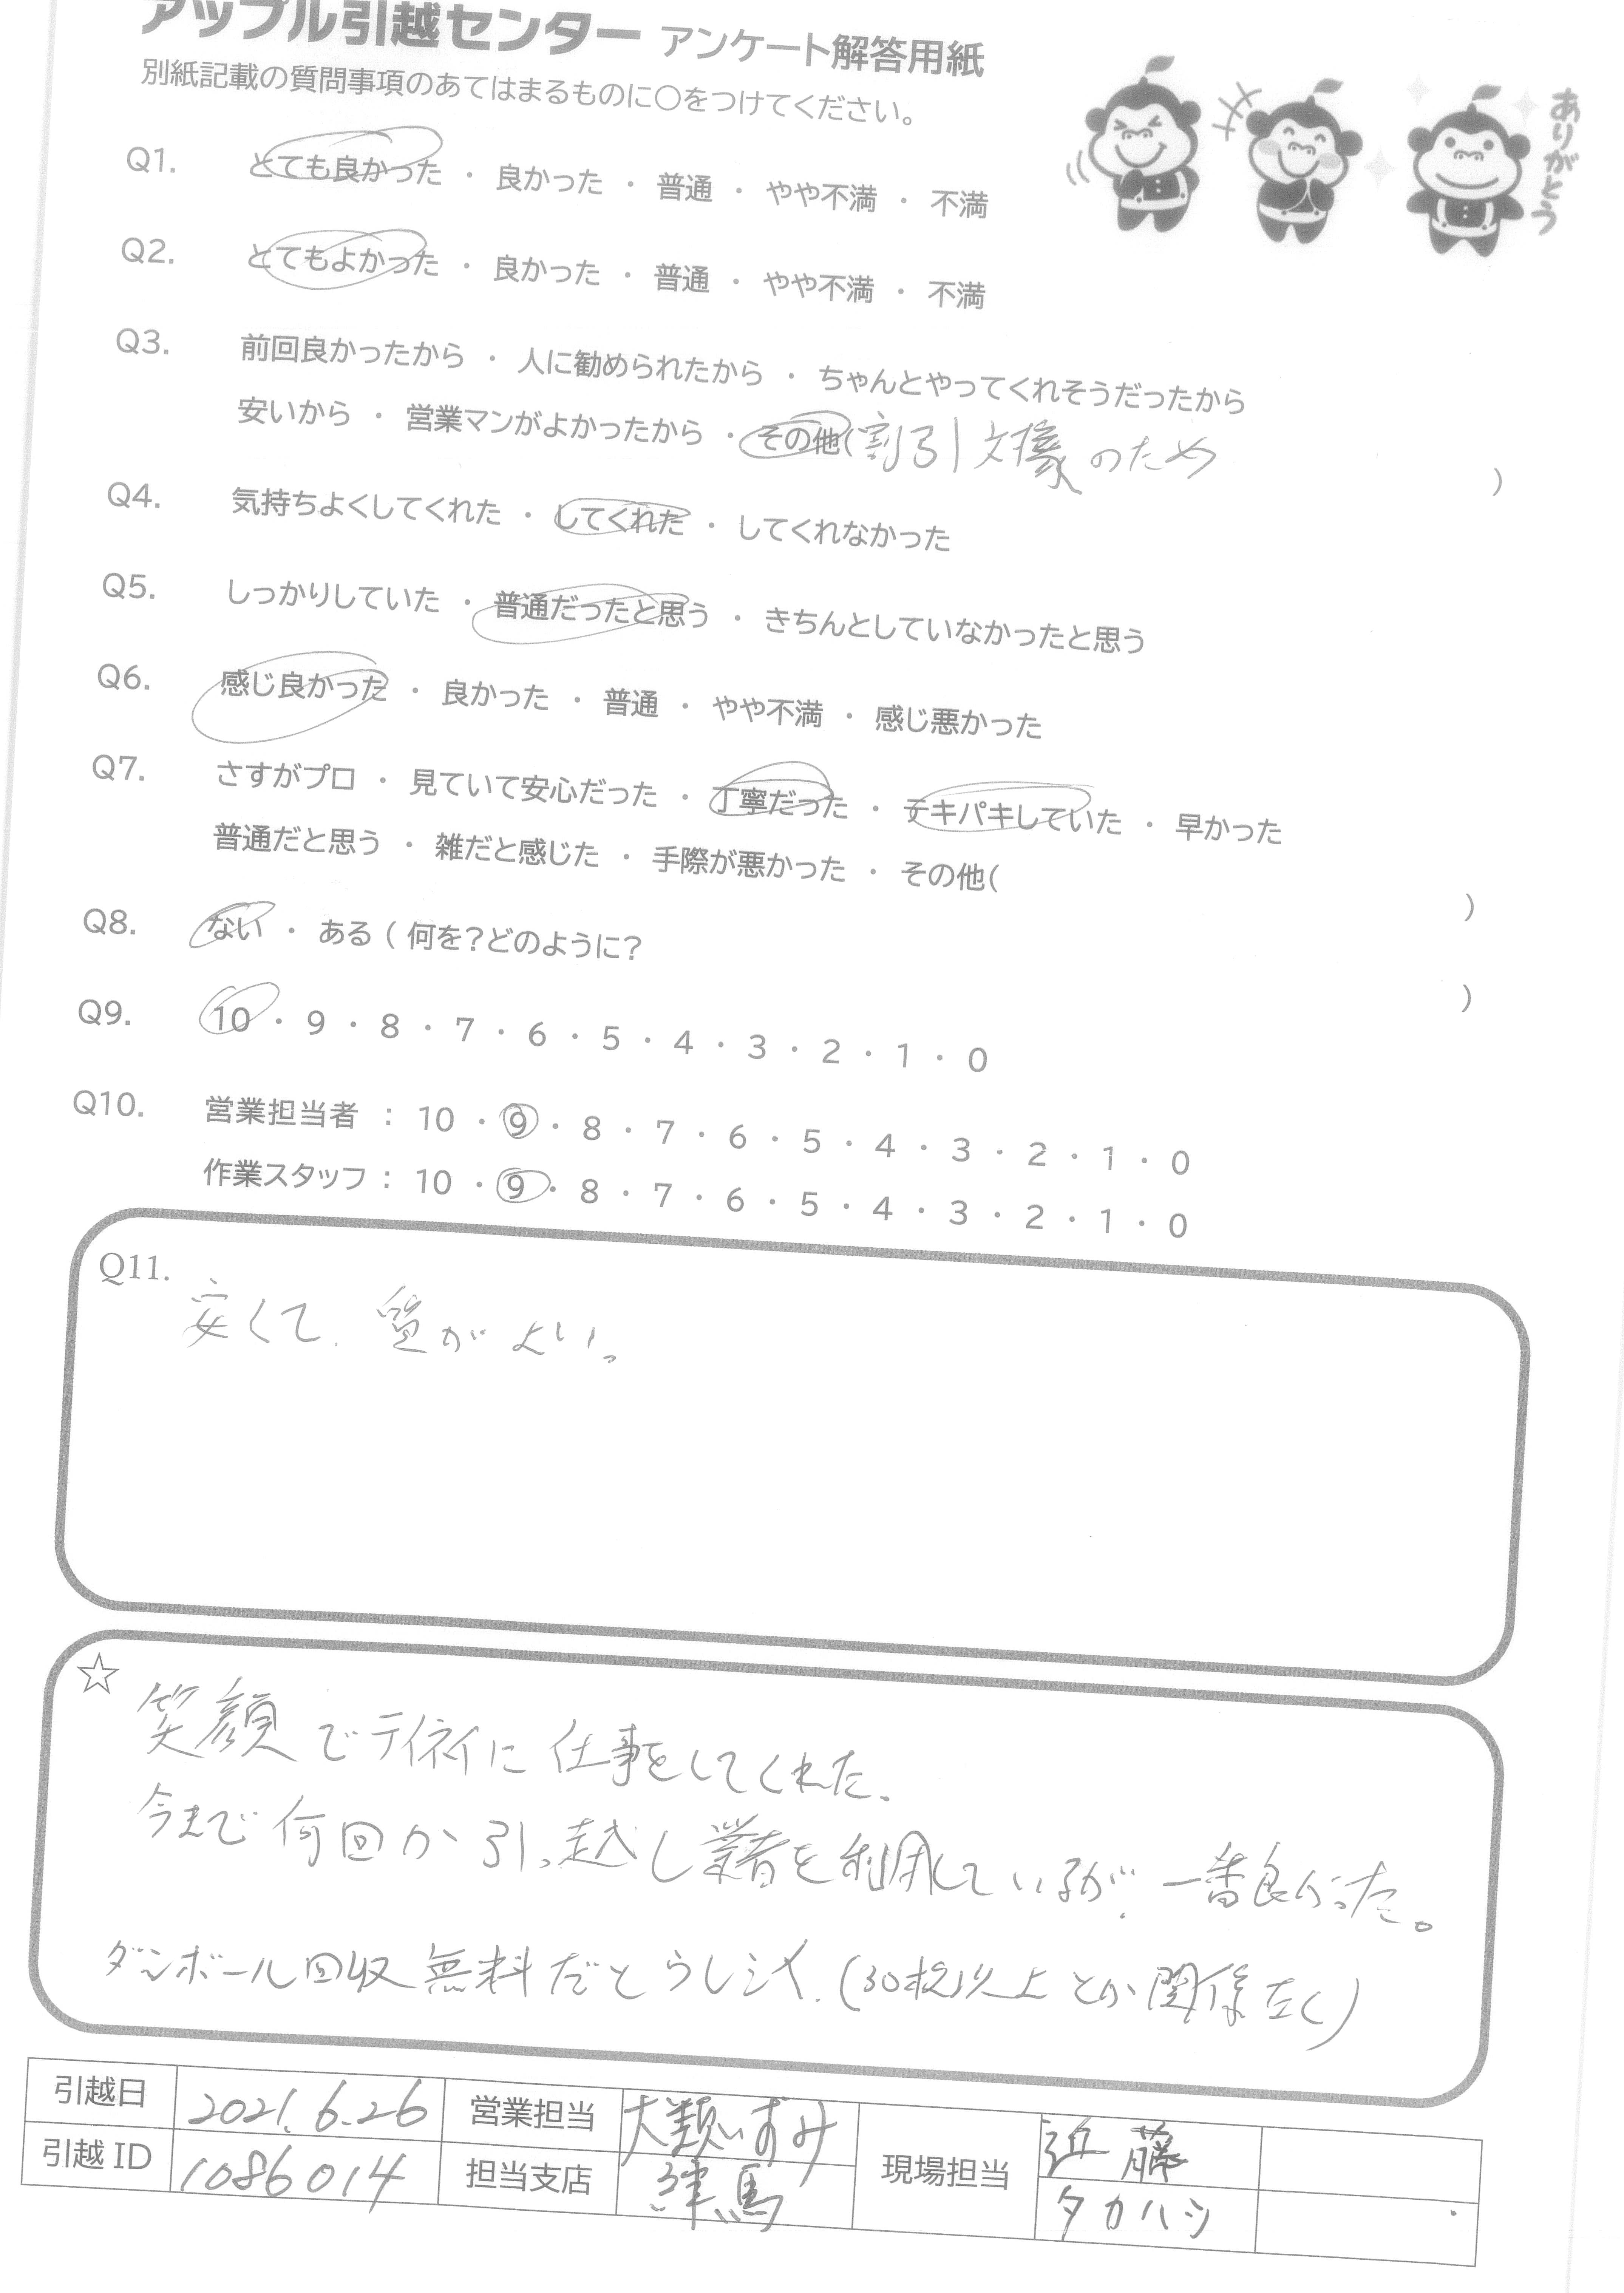 アップル引越センター アンケート解答用紙
別紙記載の質問事項のあてはまるものに○をつけてください。
ありがとう
Q1. とても良かった ・ 良かった ・ 普通 ・ やや不満 ・ 不満
Q2. とてもよかった ・ 良かった ・ 普通 ・ やや不満 ・ 不満
Q3. 前回良かったから ・ 人に勧められたから ・ ちゃんとやってくれそうだったから
安いから ・ 営業マンがよかったから ・ その他(割引対象のため )
Q4. 気持ちよくしてくれた ・ してくれた ・ してくれなかった
Q5. しっかりしていた ・ 普通だったと思う ・ きちんとしていなかったと思う
Q6. 感じ良かった ・ 良かった ・ 普通 ・ やや不満 ・ 感じ悪かった
Q7. さすがプロ ・ 見ていて安心だった ・ 丁寧だった ・ テキパキしていた ・ 早かった
普通だと思う ・ 雑だと感じた ・ 手際が悪かった ・ その他( )
Q8. ない ・ ある ( 何を?どのように? )
Q9. 10 ・ 9 ・ 8 ・ 7 ・ 6 ・ 5 ・ 4 ・ 3 ・ 2 ・ 1 ・ 0
Q10. 営業担当者 : 10 ・ 9 ・ 8 ・ 7 ・ 6 ・ 5 ・ 4 ・ 3 ・ 2 ・ 1 ・ 0
作業スタッフ : 10 ・ 9 ・ 8 ・ 7 ・ 6 ・ 5 ・ 4 ・ 3 ・ 2 ・ 1 ・ 0
Q11.
安くて、質がよい。
☆
笑顔でテイネイに仕事をしてくれた。
今まで何回か引っ越し業者を利用しているが、一番良かった。
ダンボール回収無料だとうれしい。(30枚以上とか関係なく)
引越日 2021.6.26 営業担当 大類いずみ 現場担当 近藤
引越ID 1086014 担当支店 練馬 タカハシ